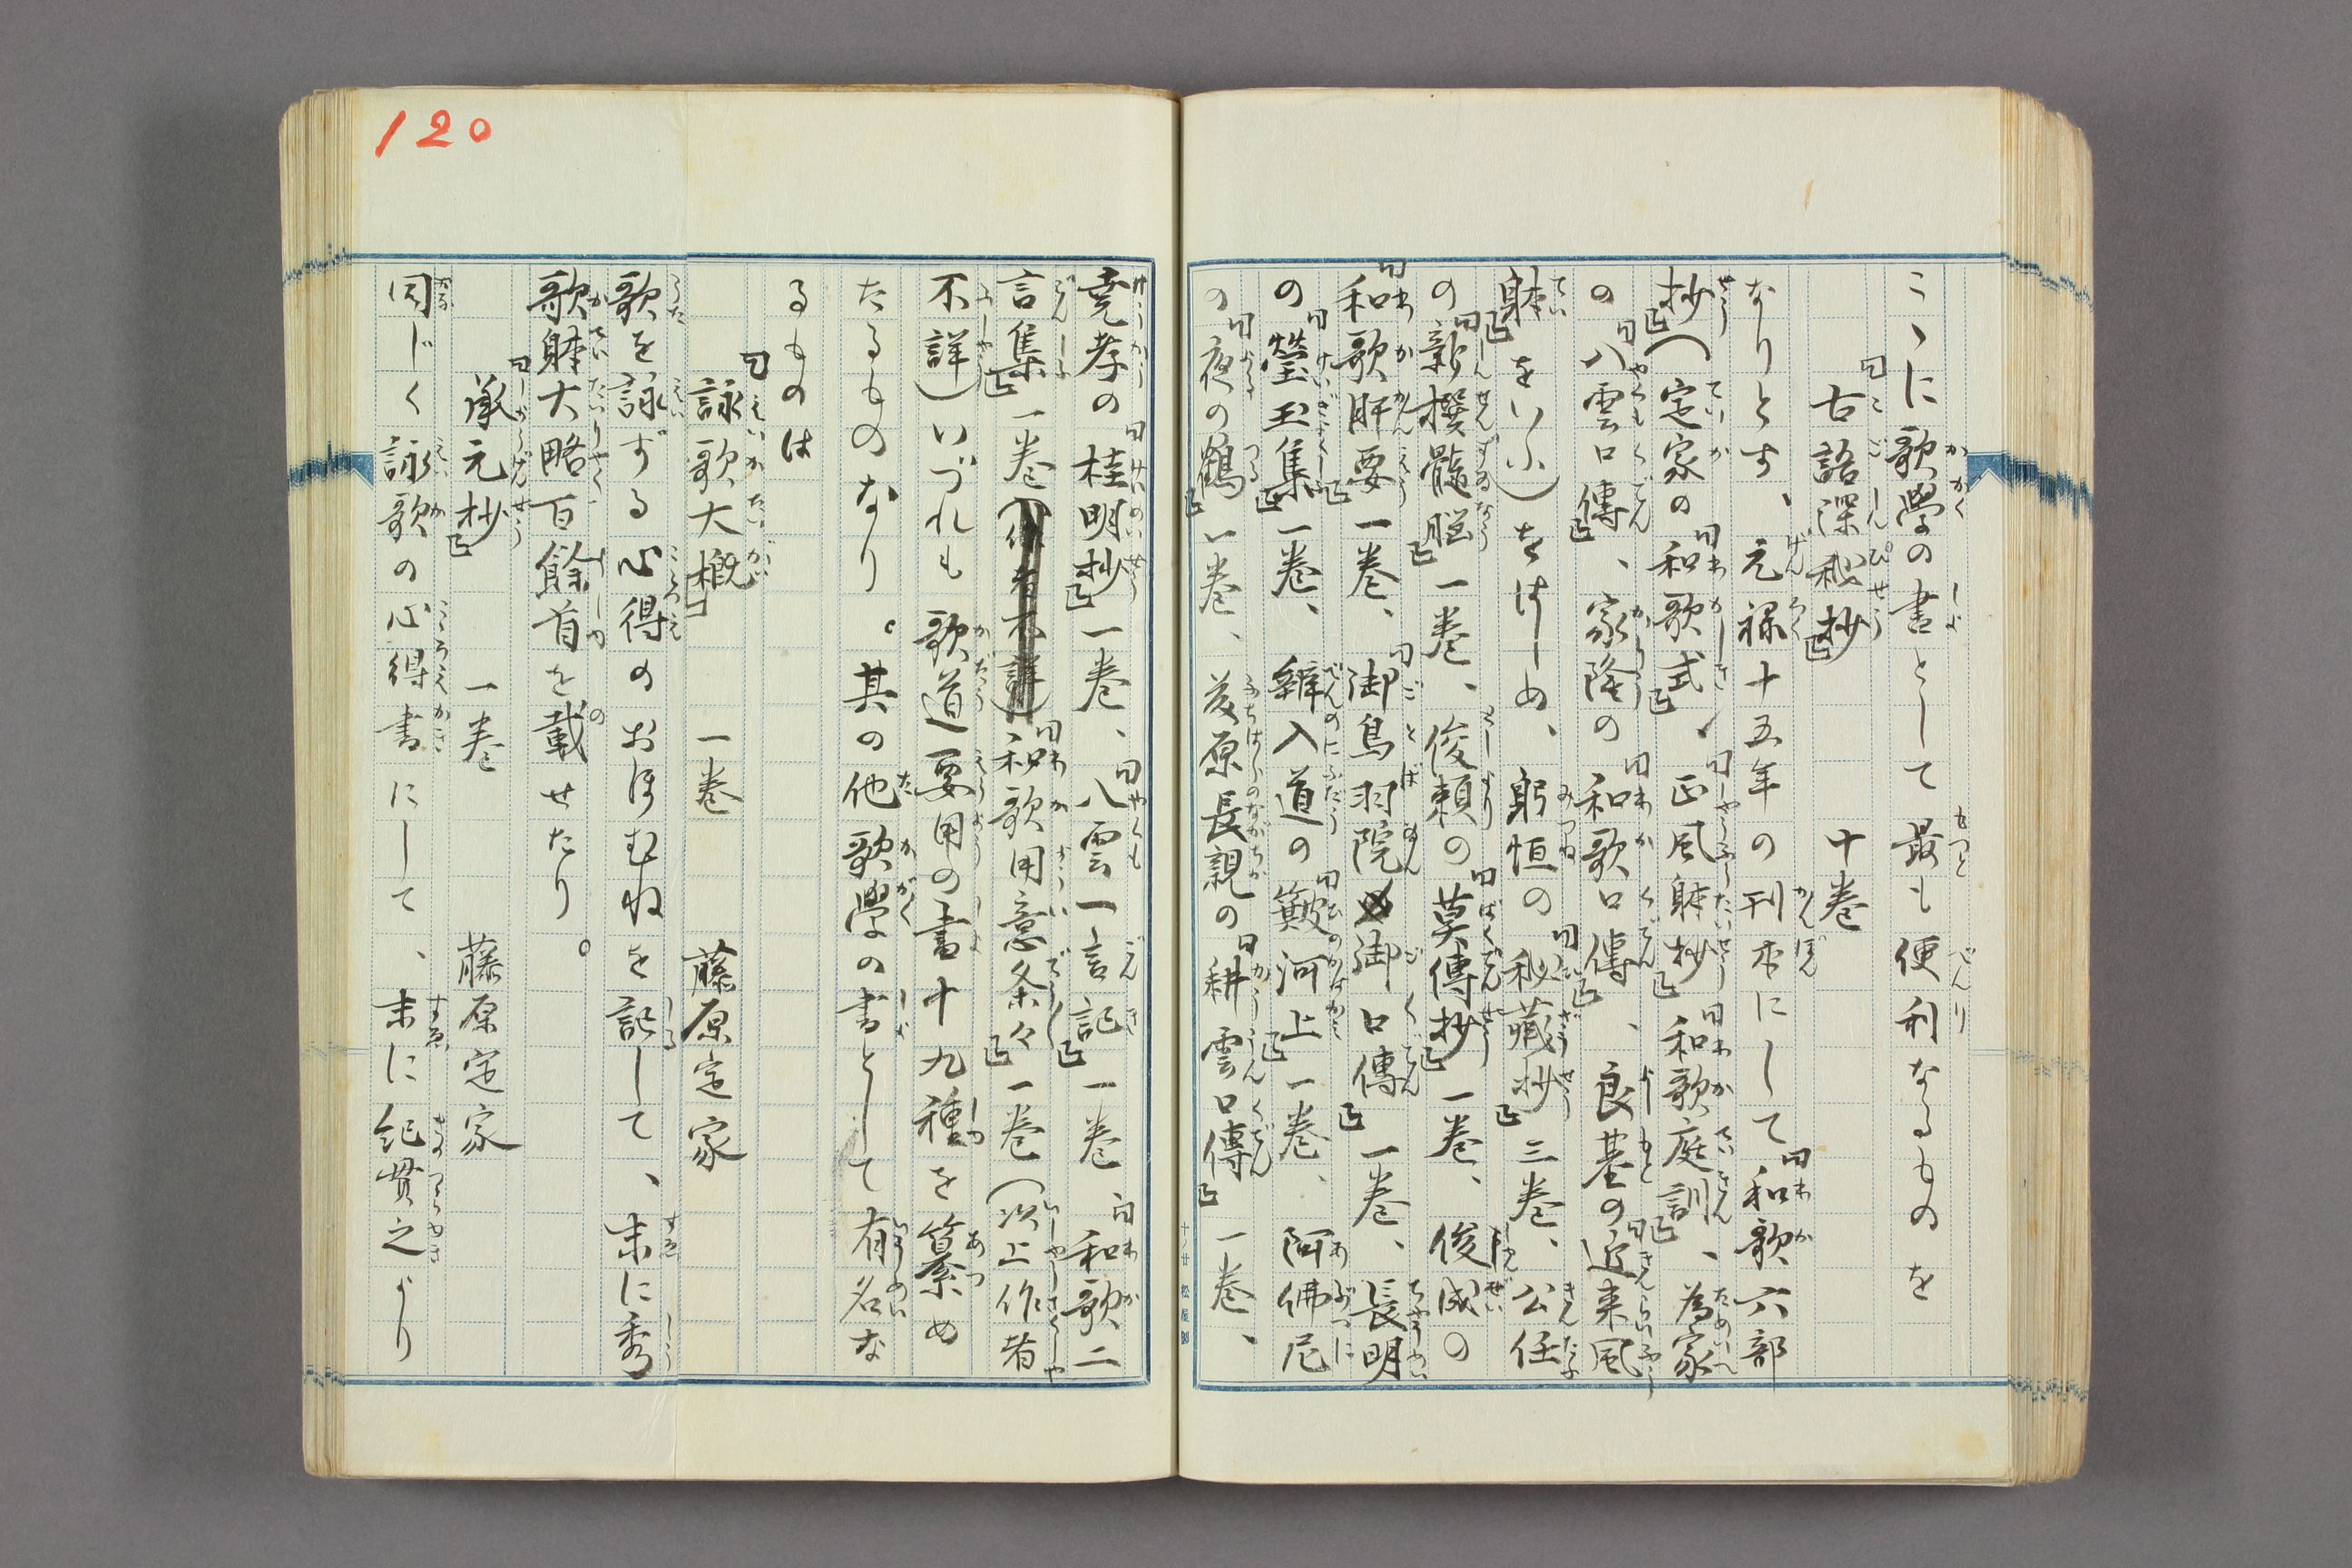 こゝに歌學の書として最も便利なるものを
「古語深秘抄」　十巻
なりとす、元禄十五年の刊本にして「和歌六部
抄」(定家の「和歌式」、「正風躰抄」「和歌庭訓」、為家
の「八雲口傳」、家隆の「和歌口傳」、良基の「近来風
躰」をいふ)をはじめ、躬恒の「秘藏抄」三巻、公任
の「新撰髄脳」一巻、俊頼の「莫傳抄」一巻、俊成の
「和歌肝要」一巻、「御鳥羽院御口傳」一巻、長明
の「瑩玉集」一巻、辨入道の「簸河上」一巻、阿佛尼
の「夜の鶴」一巻、藤原長親の「耕雲口傳」一巻、
堯孝の「桂明抄」一巻、「八雲一言記」一巻「和歌二
言集」一巻「和歌用意条々」一巻(以上作者
不詳)いづれも歌道要用の書十九種を纂め
たるものなり。其の他歌學の書として有名な
るものは
「詠歌大概」　一巻　藤原定家
歌を詠ずる心得のおほむねを記して、末に秀
歌躰大略百餘首を載せたり。
「承元抄」　一巻　藤原定家
同じく詠歌の心得書にして、末に紀貫之より
120